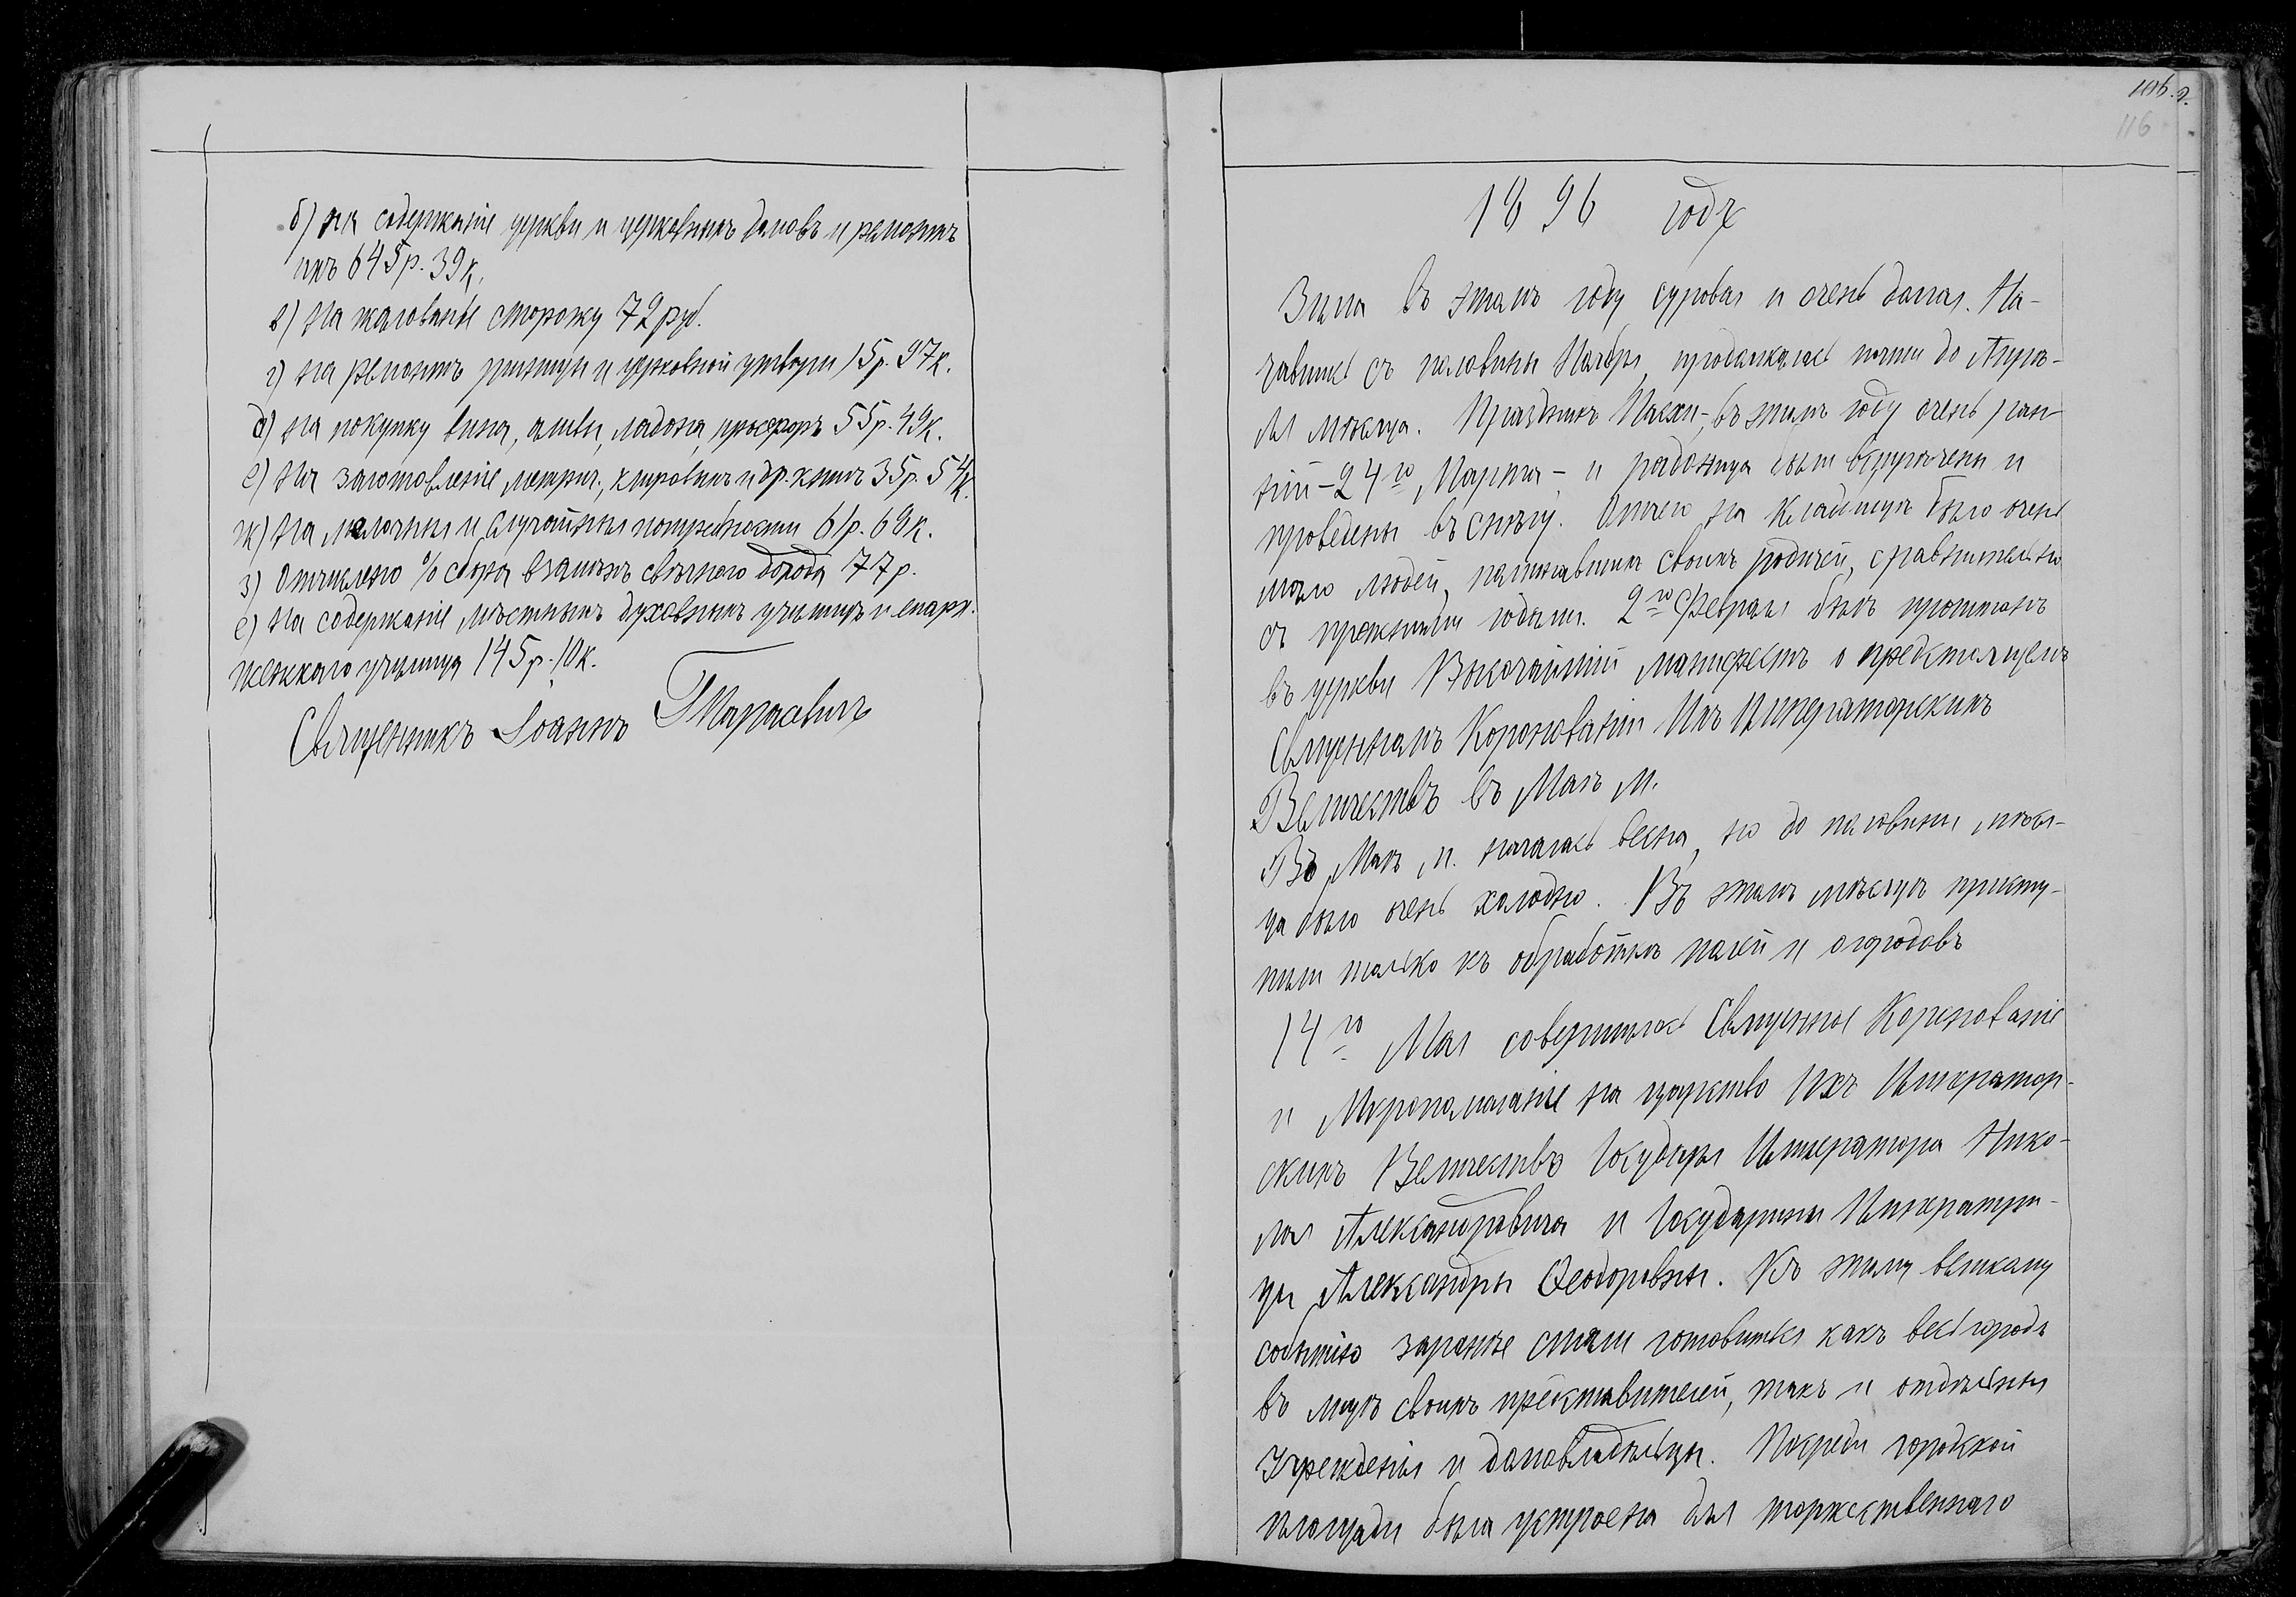 б) на содержанiе церкви и церковныхъ домовъ и ремонтъ
ихъ 645 р. 39 к.
в) на жалованье сторожу 72 руб.
г) на ремонтъ ризницы и церковной утвари 15 р. 97 к.
д) на покупку вина, оливы, ладона, просфоръ 55 р. 49 к.
е) на заготовленiе метрич., клировыхъ и др. книгъ 35 р. 54 к.
ж) на мелочныя и случайныя потребности 61 р. 69 к.
з) отчислено % сбора взамѣнъ свѣчного дохода 77 р.
е) на содержанiе мѣстныхъ духовныхъ училищъ и епарх.
женскаго училища 145 р. 10 к.
Священникъ Iоаннъ Тарасевичъ
116
1896 годъ
Зима въ этомъ году суровая и очень долгая. На-
чавшись съ половины Ноября, продолжалась почти до Апрѣ-
ля мѣсяца. Праздникъ Пасхи - въ этомъ году очень ран-
нiй - 24го Марта - и радоница были встрѣчены и
проведены въ снѣгу. Отчего на кладбищѣ было очень
мало людей, поминавшихъ своихъ родичей, сравнительно
съ прежними годами. 2го Февраля былъ прочитанъ
въ церкви Высочайшiй манифестъ о предстоящемъ
Священномъ Коронованiи Ихъ Императорскихъ
Величествъ въ Маѣ м.
Въ Маѣ м. началась весна, но до половины мѣся-
ца было очень холодно. Въ этомъ мѣсяцѣ присту-
пили только къ обработкѣ полей и огородовъ
14го Мая совершилось Священное Коронованiе
и Мѵропомазанiе на царство Ихъ Император-
скихъ Величествъ Государя Императора Нико-
лая Александровича и Государыни Императри-
цы Александры Ѳеодоровны. Къ этому великому
событiю заранѣе стали готовиться какъ весь городъ
въ лицѣ своихъ представителей, такъ и отдѣльныя
Учрежденiя и домовладѣльцы. Посреди городской
площади была устроена для торжественнаго